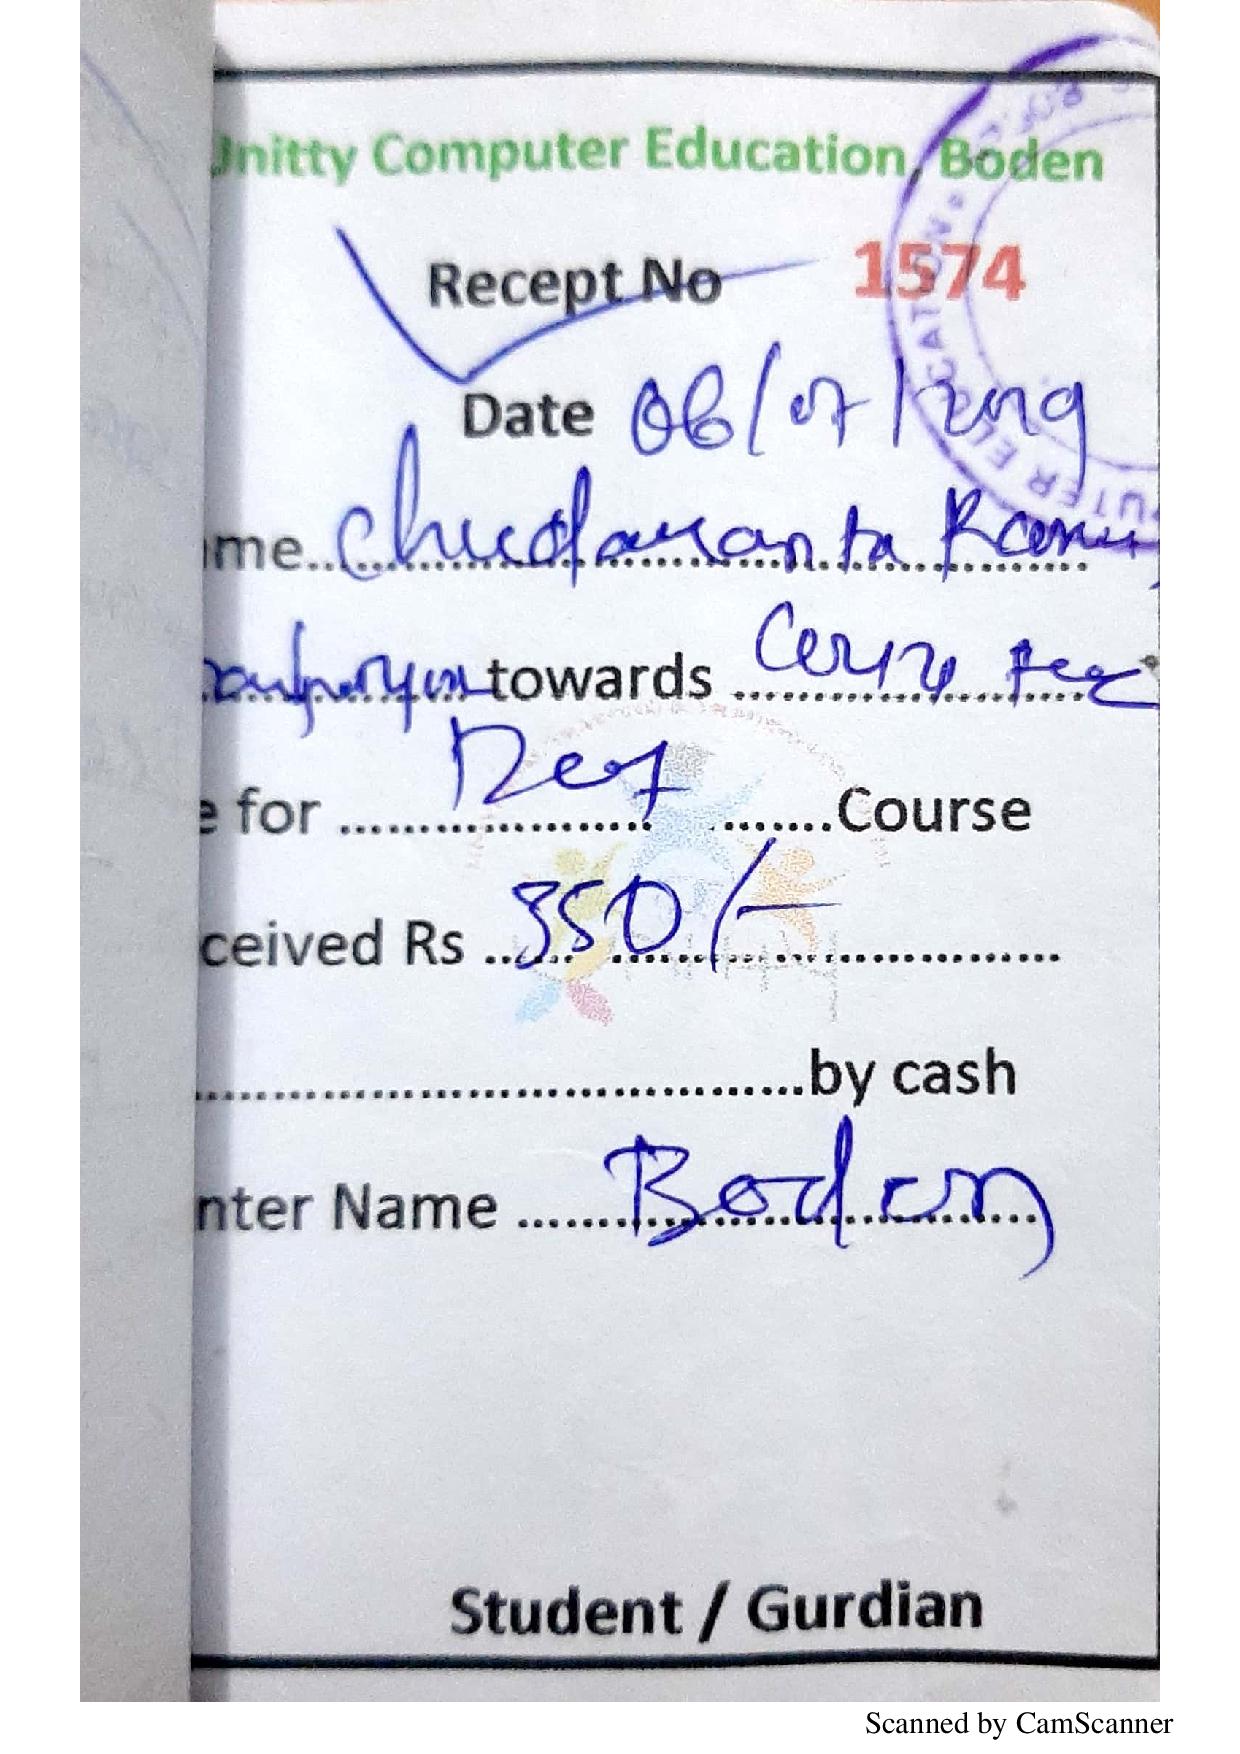 Unitty Computer Education, Boden
Recept No 1574
Date 06/07/2019
me.. Chudananta
towards
e for Course
ceived Rs 350/-
by cash
nter Name Boden
Student / Gurdian
Scanned by CamScanner